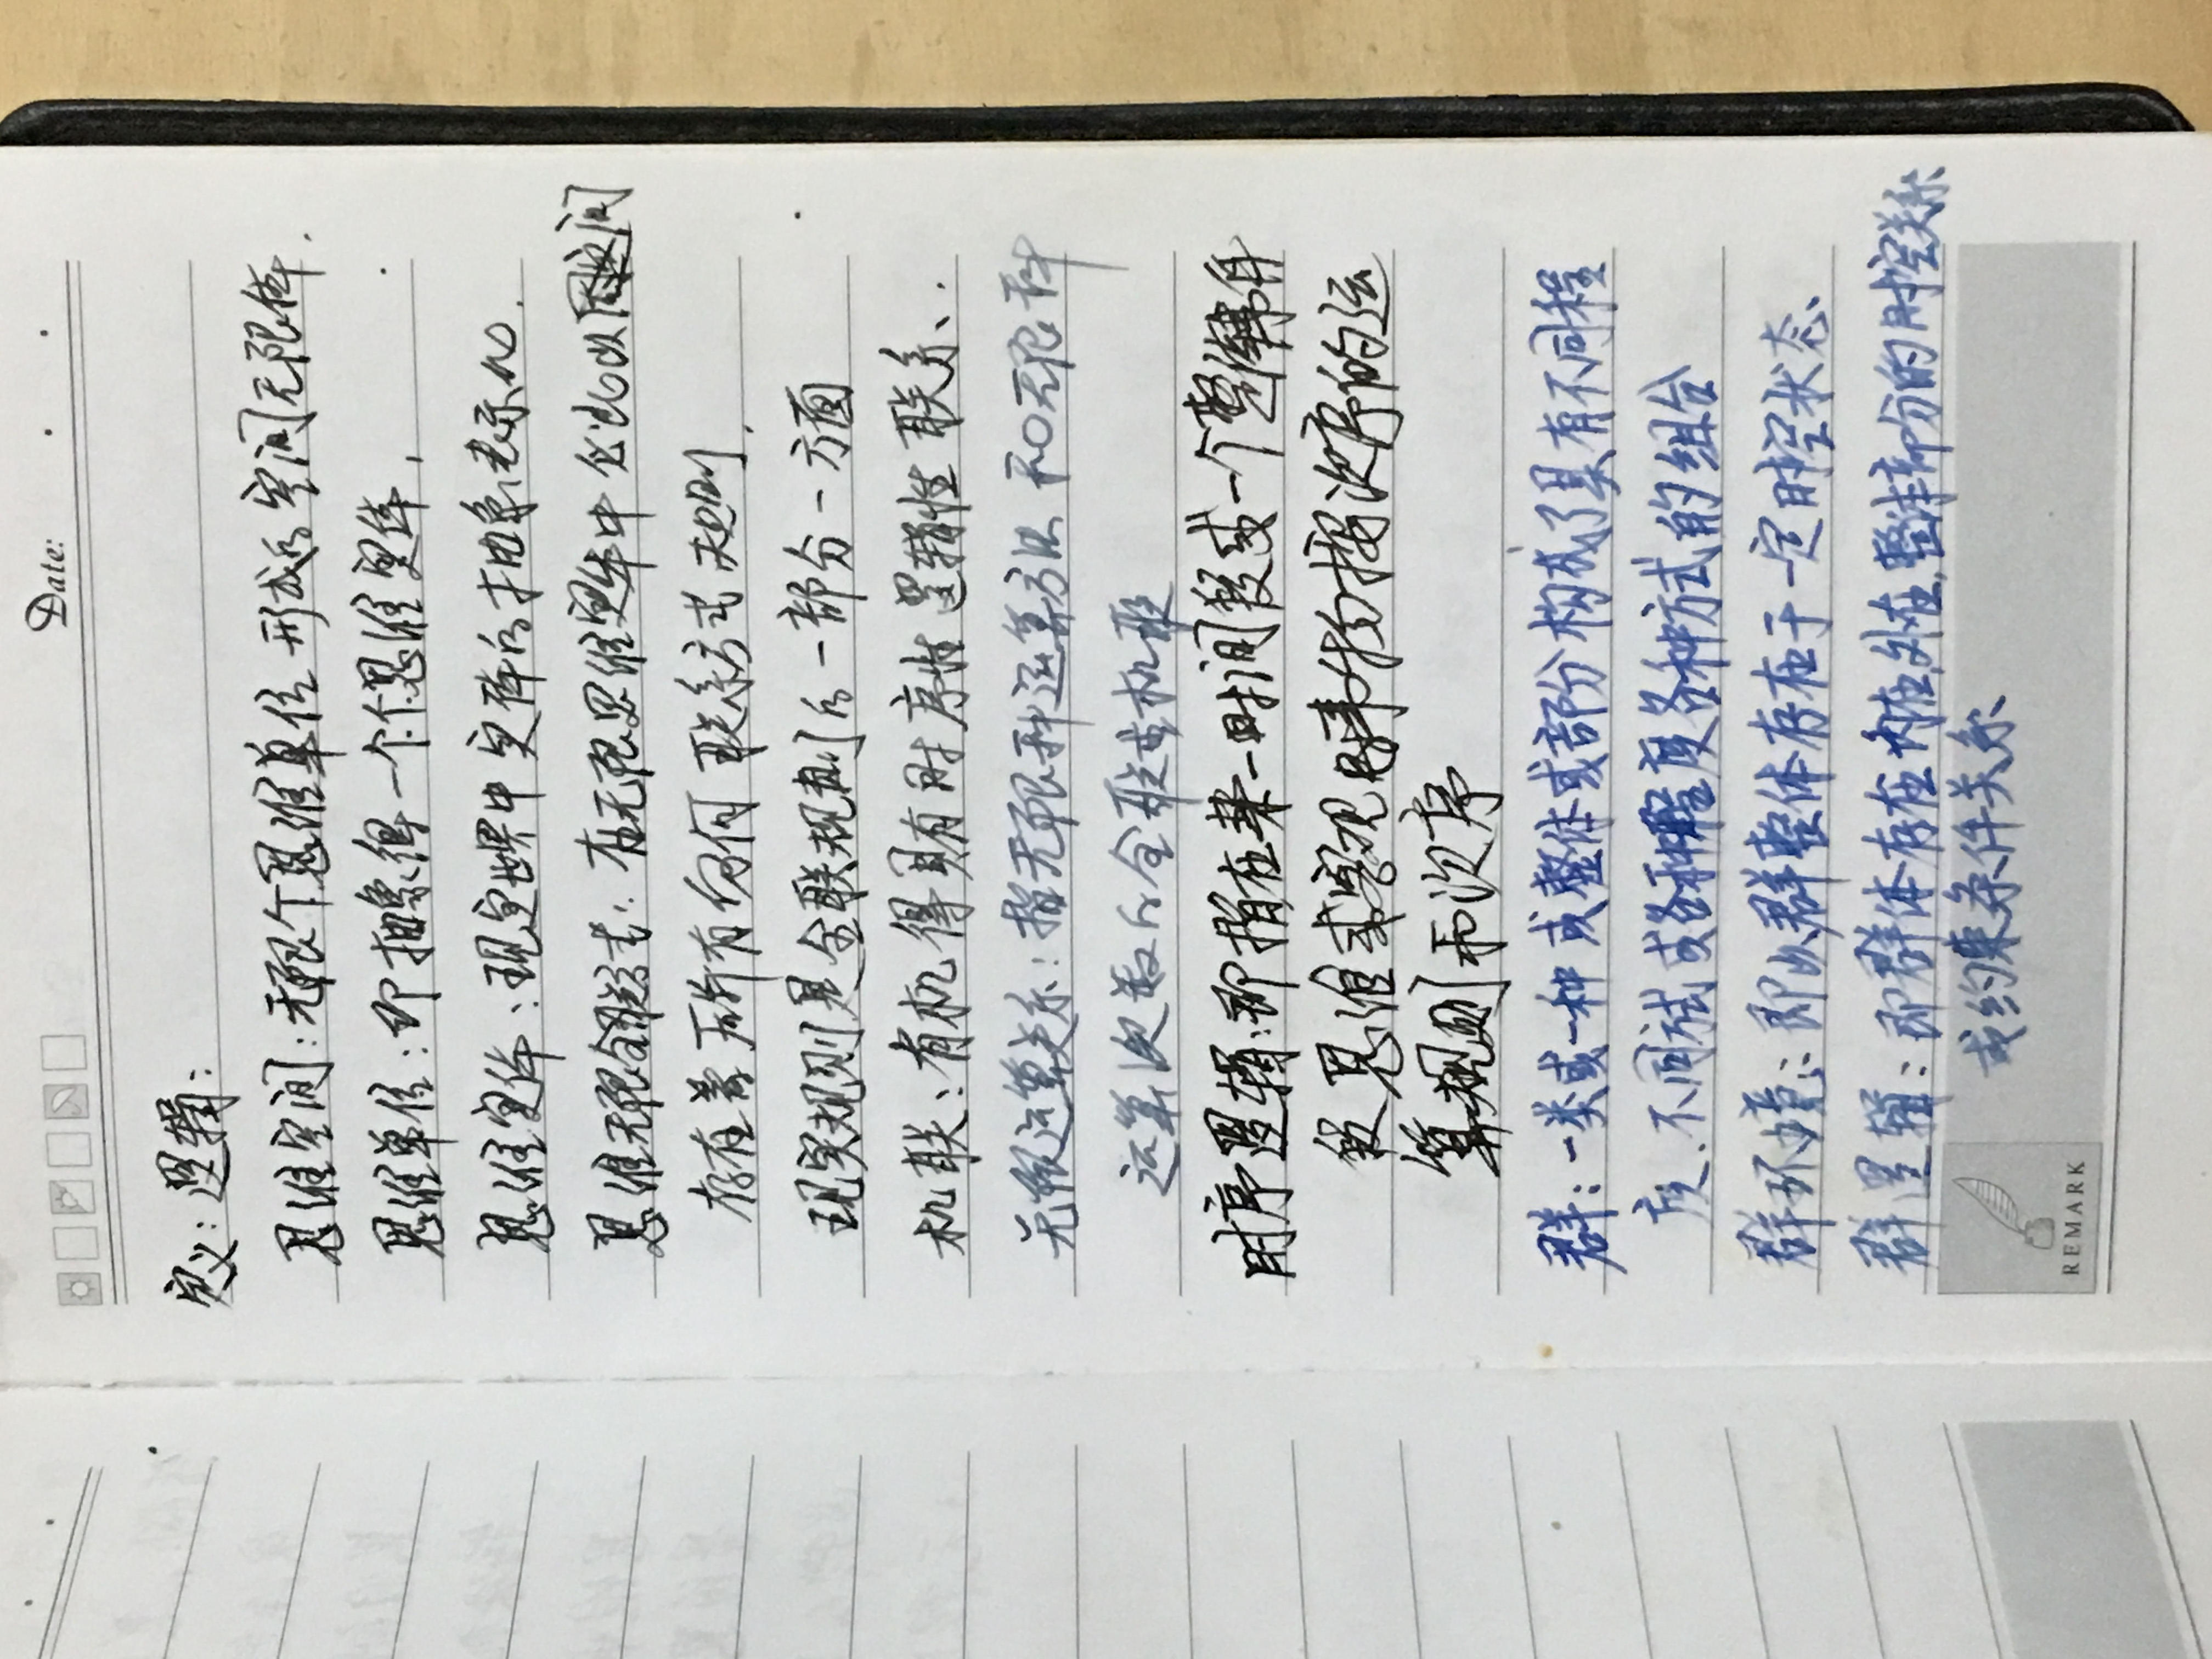 Date:
定义：逻辑：
思维空间：无限个思维单位形成的空间无限体.
思维单位：即抽象得一个个思维实体,
思维实体：现实世界中实体的抽象表示化.
思维无限全联方式：在无限思维实体中 彼此以 之间
存在着所有任何联系方式规则.
现实规则是全联规则的一部分一方面
机联：有机得具有时序性逻辑性联系.
无限运算关系：指无限种运算方法和无限种
运算次数的全联或机联
时序逻辑：即指在某一时间段或一个整 有
段思维或客观 事物按次序的运
算规则和次序
群：一类或一种或整体或部分构成了具有不同程
度、不同方式或各种程度各种方式的组合
群环境：即以群整体存在于一定时空状态
群逻辑：即群体存在内在,外在,整体部分的时空关系
或约束条件关系
REMARK